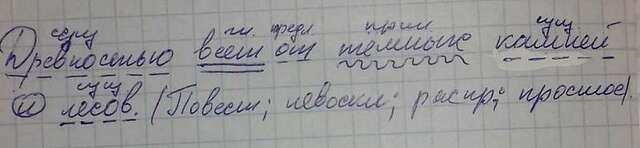 сущ гл. предл прил сущ
Древностью веет от темных камней
сущ
и лесов. (Повест; невоскл; распр; простое).